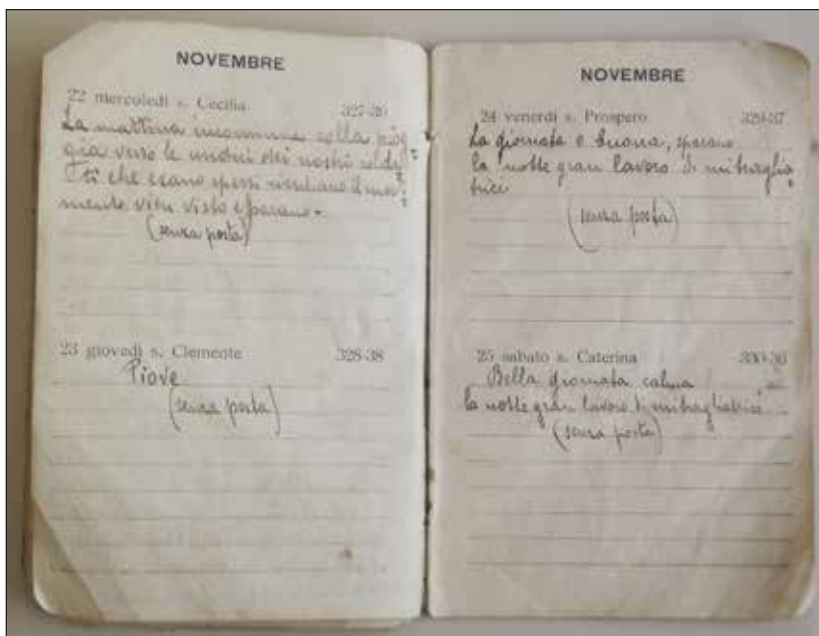 NOVEMBRE
22 mercoledì s. Cecilia 327-39
La mattina incomincia colla piog
gia verso le undici dei nostri solda
ti che erano spersi
mento visto e sparano -
(senza posta)
23 giovedì s. Clemente 328-38
Piove
(senza posta)
NOVEMBRE
24 venerdì s. Prospero 329-37
La giornata è buona, sparano
la notte gran lavoro di mitraglia
trici
(senza posta)
25 sabato s. Caterina 330-36
Bella giornata calma
la notte gran lavoro di mitragliatrici
(senza posta)